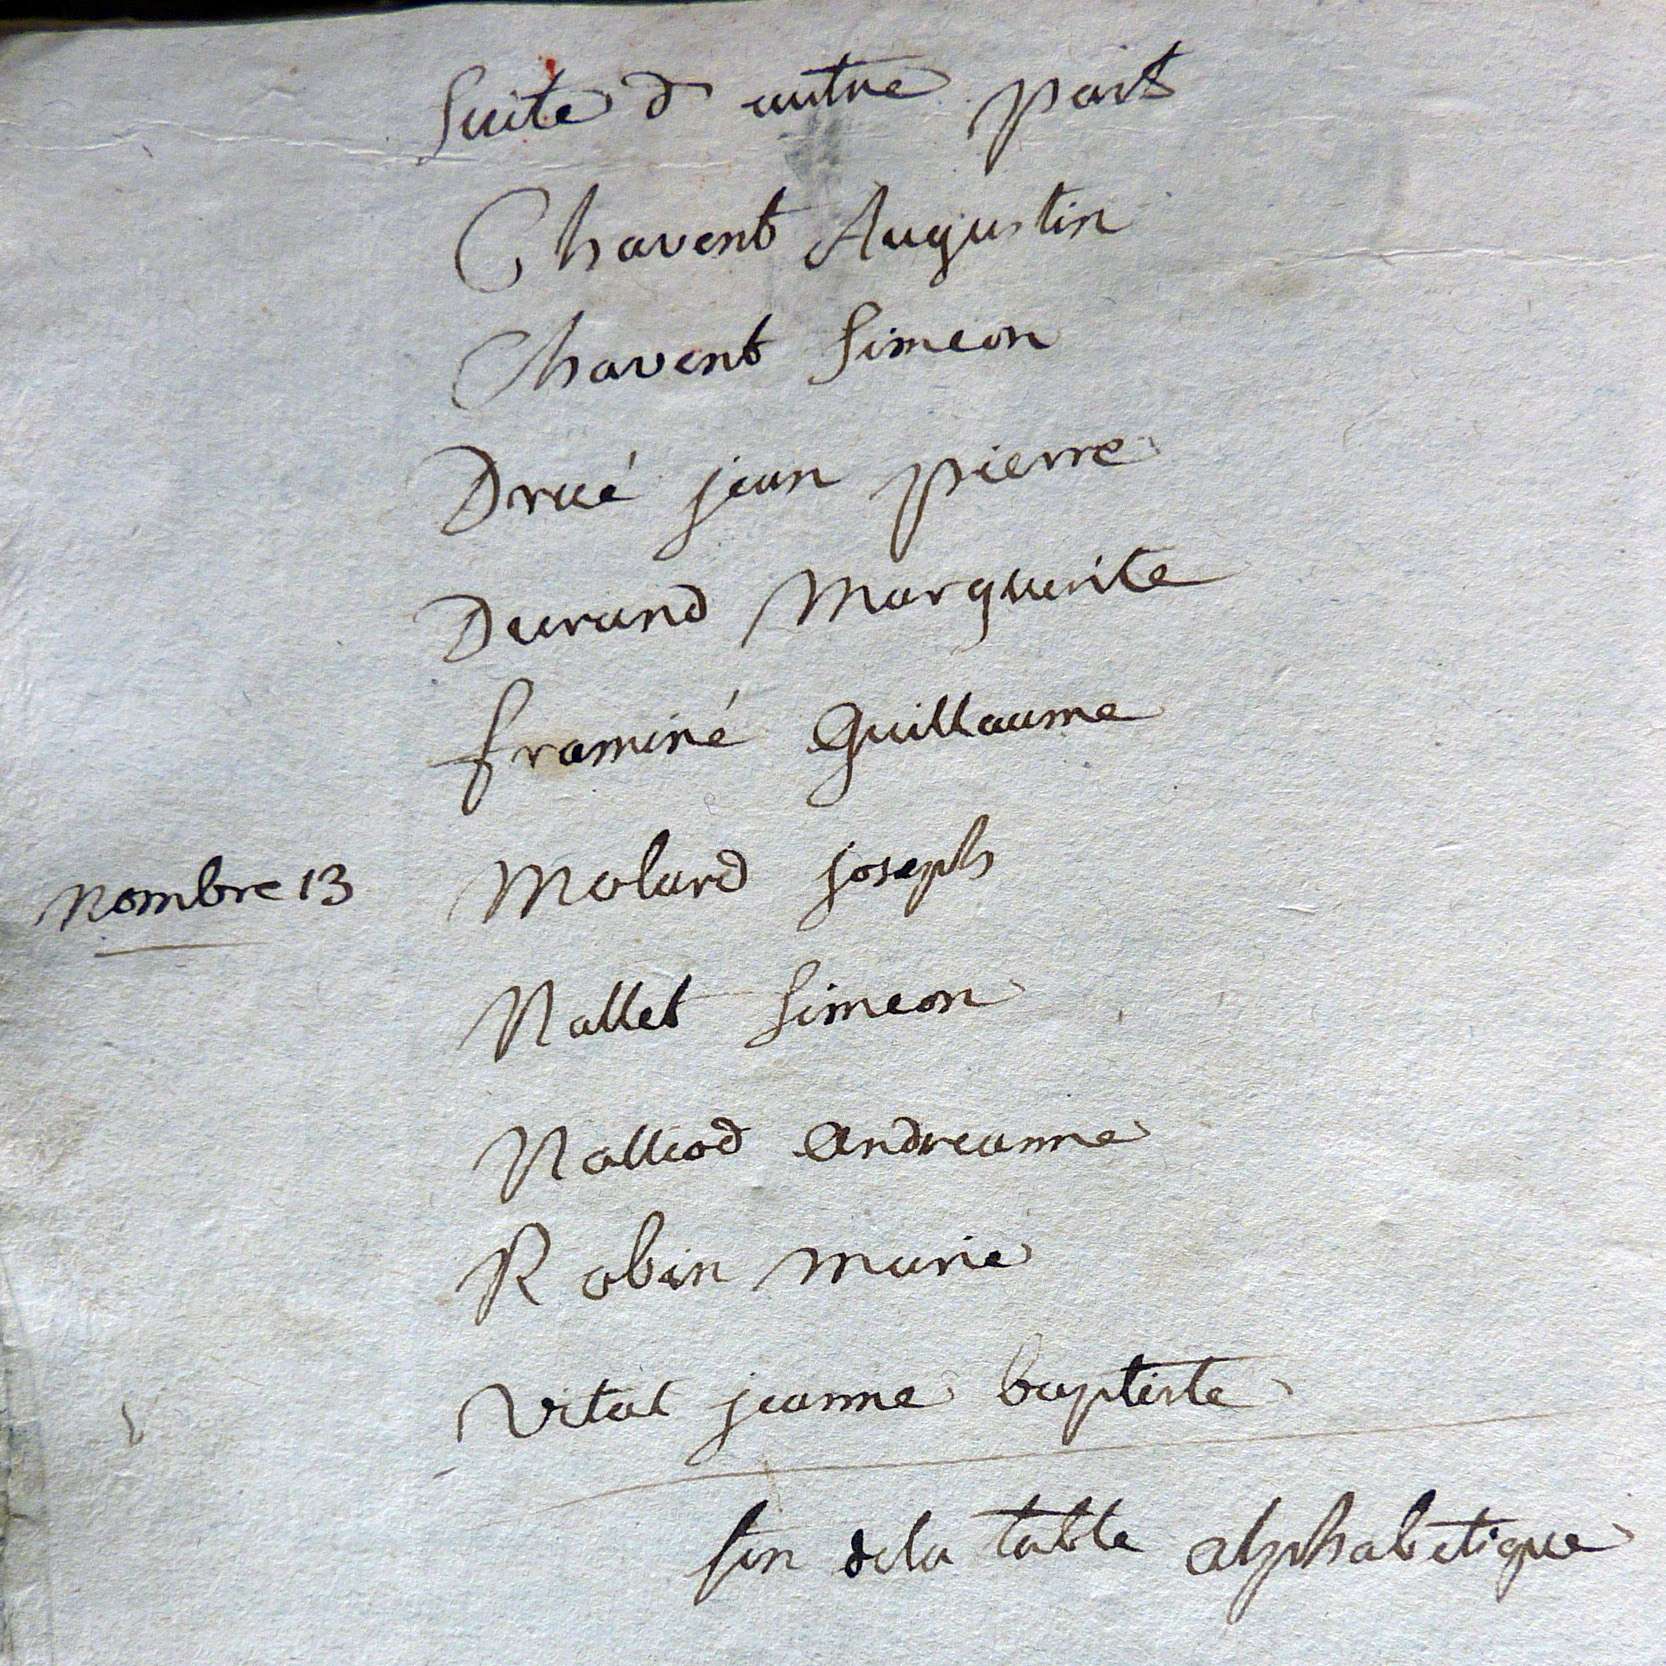 Suite d autre part
Chavent Augustin
Chavent Simeon
Drué jean pierre
Durand Marguerite
framiné Guillaume
Nombre 13 Molard joseph
Nallet Simeon
Nalliod Andreanne
Robin marie
Vital jeanne baptiste
fin de la table alphabetique